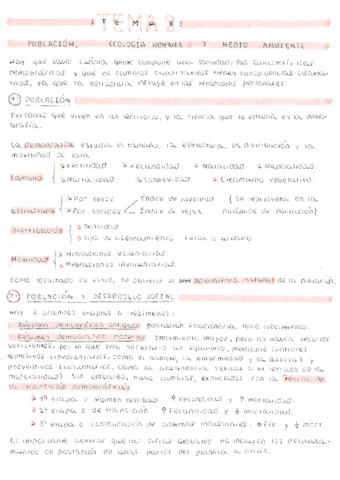 TEMA 8:
POBLACIÓN, ECOLOGÍA HUMANA Y MEDIO AMBIENTE
Hay que saber cuánta gente compone una sociedad, sus características
demográficas y que los cambios cuantitativos tienen consecuencias
ya que la estructura influye en las relaciones personales.
1. POBLACIÓN
Personas que viven en un territorio, y la ciencia que lo estudia es la demo-
grafía.
La demografía estudia el tamaño, la estructura, la distribución y la
movilidad de esta.
Tamaño Fertilidad Fecundidad Natalidad
Mortalidad Longevidad Crecimiento vegetativo.
Estructura Por sexos Índice de juventud (se representa en la
Por edades Índice de vejez pirámide de población)
Distribución Densidad
Tipo de asentamiento rural o urbano
Movilidad Migraciones voluntarias
Migraciones involuntarias.
Como resultado de esto, se obtiene el movimiento natural de la población.
2. POBLACIÓN Y DESARROLLO SOCIAL
Hay 2 grandes etapas o regímenes:
Régimen demográfico antiguo: población estacionaria, crecimiento.
Régimen demográfico moderno: crecimiento mayor, pero no había recursos
suficientes, por lo que era necesario un equilibrio, mediante controles
represivos (involuntarios, como el hambre, la enfermedad y la guerra) y
preventivos (voluntarios, como la abstinencia sexual o el retraso de la
Sin embargo, hubo cambios, explicados con la teoría de
la transición demográfica:
1ª etapa o régimen antiguo. ↑ fecundidad y ↑ mortalidad.
2ª etapa o de transición. ↑ fecundidad y ↓ mortalidad.
3ª etapa o consolidación de sistemas industriales: ↓ y ↓ mort.
Es importante aclarar que las cifras globales no incluyen los desplaza-
mientos de población de unas partes del planeta a otras.